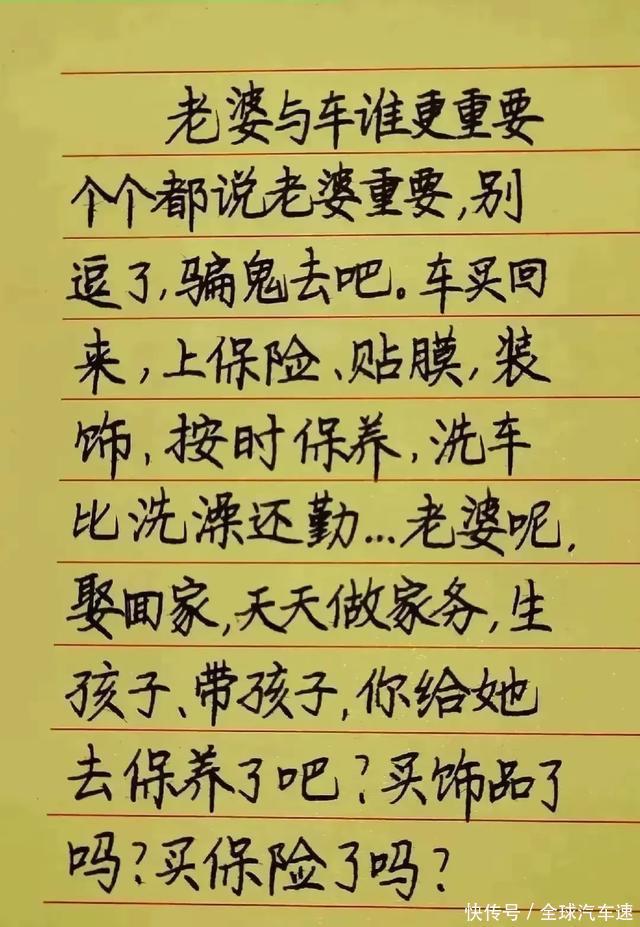 老婆与车谁更重要
个个都说老婆重要,别
逗了,骗鬼去吧。车买回
来,上保险、贴膜,装
饰,按时保养,洗车
比洗澡还勤...老婆呢,
娶回家,天天做家务,生
孩子、带孩子,你给她
去保养了吧?买饰品了
吗?买保险了吗?
快传号/全球汽车速